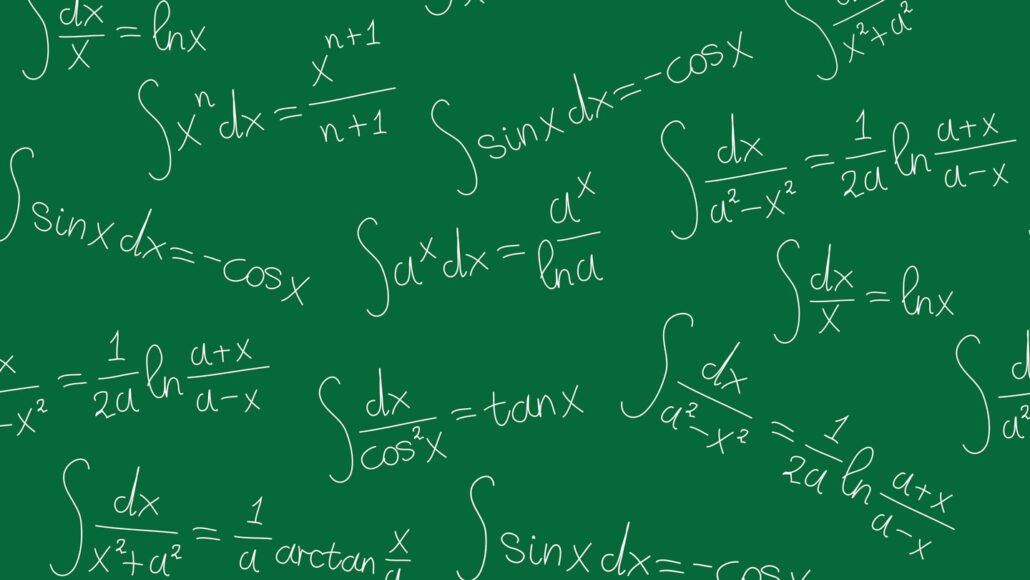 ∫ dx/x = lnx
∫ x^n dx = x^(n+1)/(n+1)
∫ sinx dx = -cosx
x²+a²
∫ dx/(a²-x²) = 1/2a ln (a+x)/(a-x)
∫ sinx dx = -cosx
∫ a^x dx = a^x/lna
∫ dx/x = lnx
-x² = 1/2a ln (a+x)/(a-x)
∫ dx/cos²x = tanx
∫ dx/(a²-x²) = 1/2a ln (a+x)/(a-x)
∫ d/a²
∫ dx/(x²+a²) = 1/a arctan x/a
∫ sinx dx = -cosx